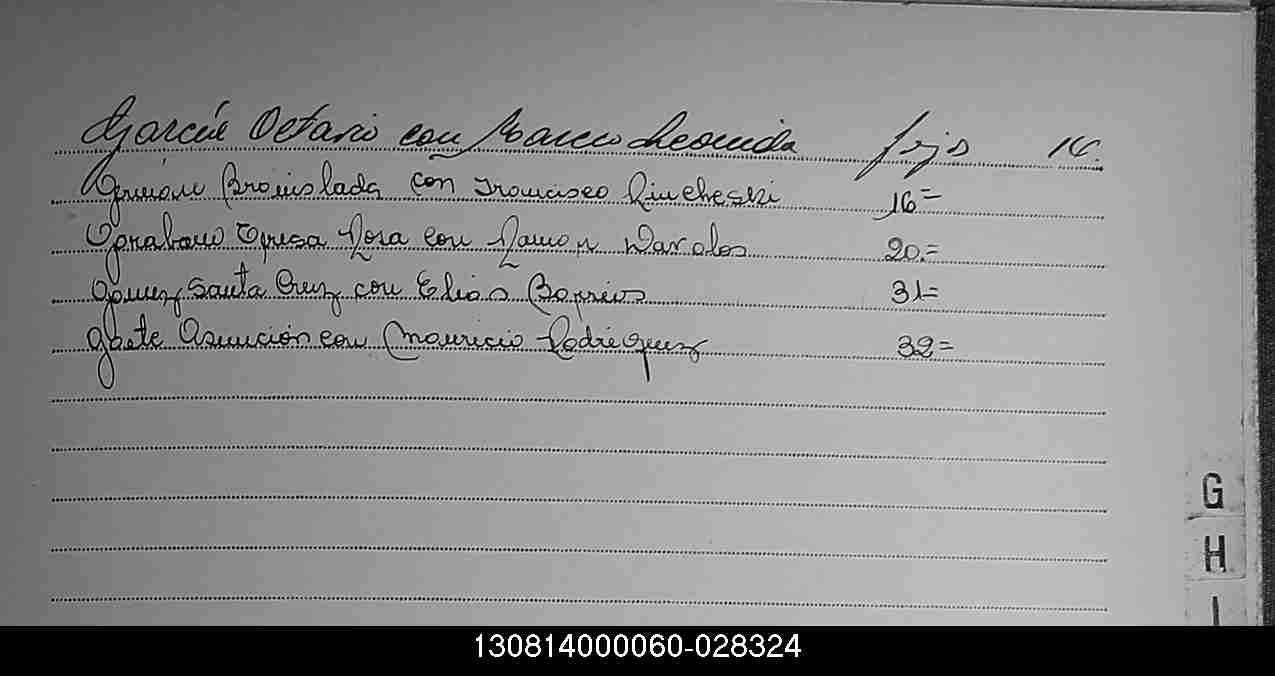 García Octavio con Marcos Leonida fojs 14.
Bronislada con Francisco 16=
Teresa Rosa con Ramon Davalos 20.=
Gomez Santa Cruz con Elias Barrios 31=
Gaete Asunción con Mauricio Rodriguez 32=
G
H
I
130814000060-028324